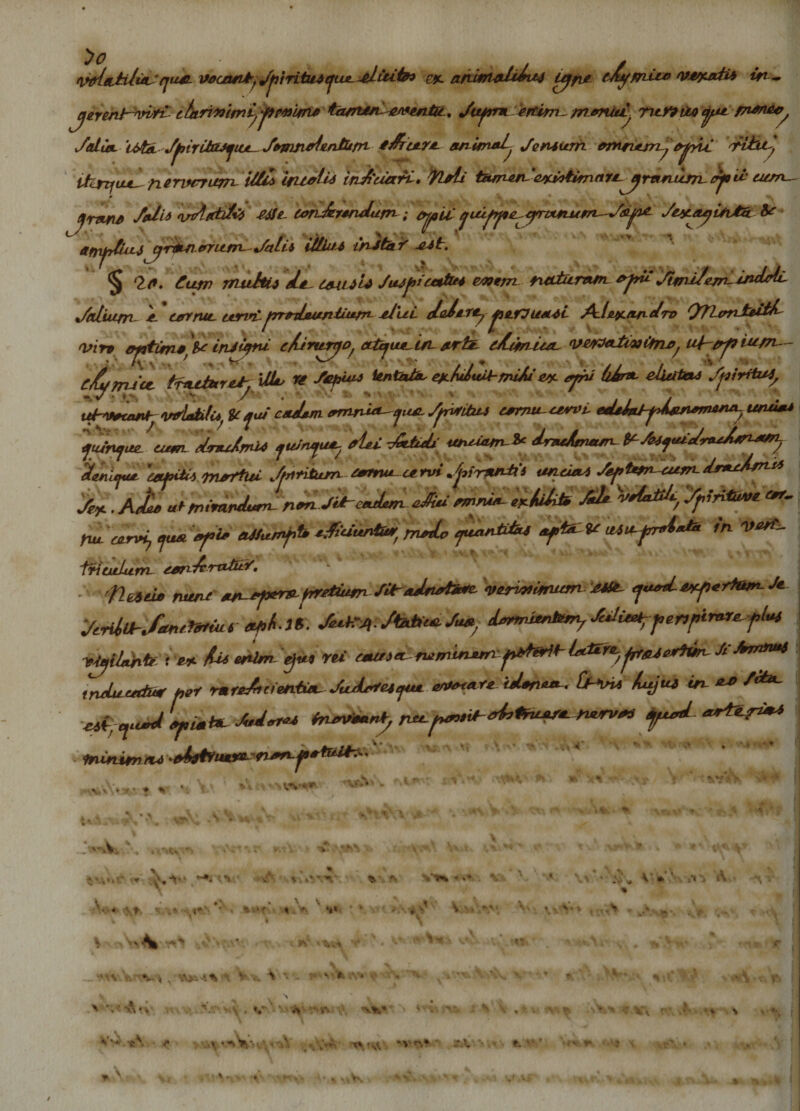 30
volatilia quæ vocant, spiritusque elicitos ex animalibus igne chymico vexatis in-
gerent viri clarissimi, pessimo tamen eventu. Supra enim monui, rursusque moneo,
salia ista spiritusque somnolentum efficere animal, sensum omnem, opii ritu,
itemque nervorum illis incolis inficiari. Noli tamen existimare granum opii cum
grano salis volatilis esse conferendum; opii quippe granum sæpe sexaginta &
amplius granorum salis illius instar est.
§ 20. Cum multis de causis suspicatus essem naturam opii similem indoli
salium è cornu cervi prodeuntium elui debere, persuasi Alexandro Monteith
viro optimo, & insigni chirurgo, atque in arte chimica versatissimo, ut opium
chymice tractaret, ille re sæpius tentata exhibuit mihi ex opii libra elicitos spiritus,
ut vocant volatilis, & qui eadem omnia quæ spiritus cornu cervi edebat phænomena, uncias
quinque cum drachmis quinque, olei fætidi unciam & drachmam & sesquidrachmam,
denique capitis mortui spiritum cornu cervi spirantis uncias septem cum drachmis
sex. Adeo ut mirandum non sit eadem effici omnia exhibito sale volatili, spirituve cor-
nu cervi, quæ opio assumpto efficiuntur, modo quantitas apta & usu probata in ven-
triculum conferatur.
Nescio nunc an operæ pretium sit adnotare verissimum esse quod expertum se
scribit Sanctorius aph. 18. Sect. 4. Statica sua, dormientem, scilicet, perspirare plus
vigilante: ex his enim ejus rei causa neminem poterit latere, præsertim si somnus
inducatur per rarefacientia sudoresque evocare idonea. Et vis hujus in eo sita
est, quod opiata sudores moveant, nec possit obstruere nervos quod arterias
minimas obstruere non potuit.